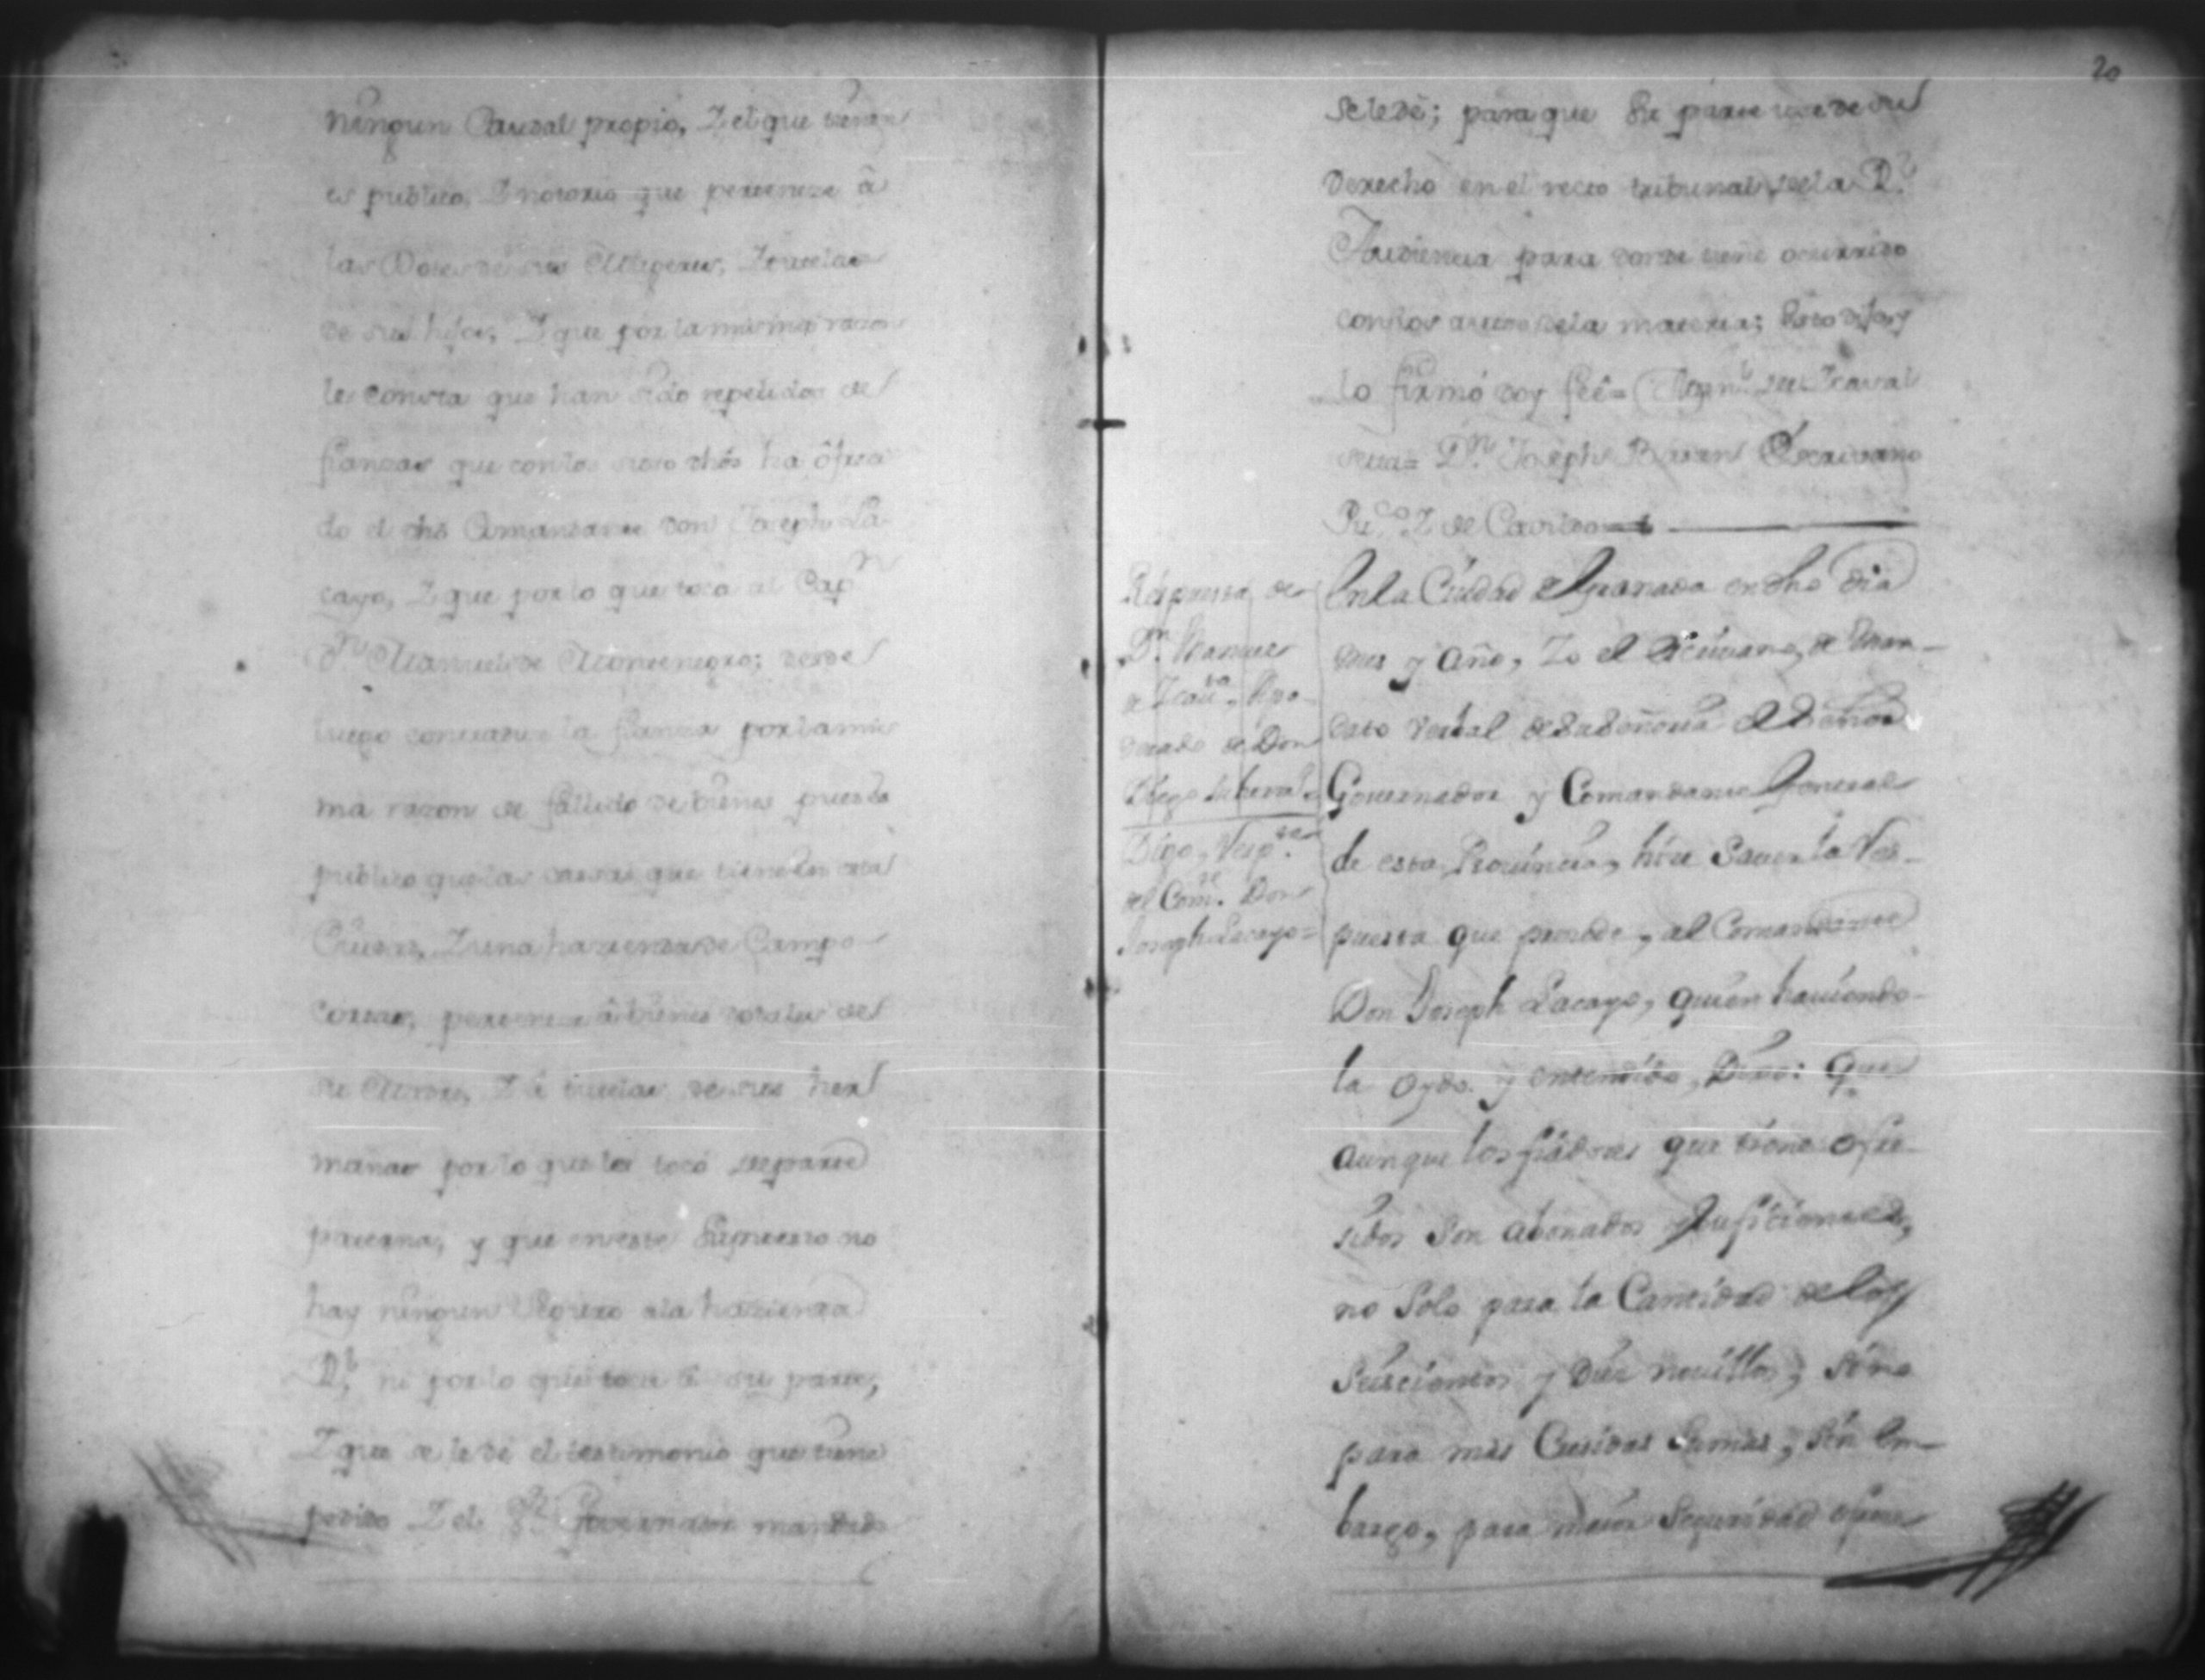 ningun Caudal propio, Y el que tienen
es publico, Y notorio que perteneze â
las Dotes de sus Mugeres, Y tutelas
de sus hijos, Y que por la misma razon
le consta que han sido repelidos de
fianzas que con los dhôs ha ôfreci
do el dhô Comandante Don Joseph La-
cayo, Y que por lo que toca al Capⁿ
Dⁿ Manuel de Montenegro; desde
luego contradice la fianza por la mis
ma razon de fallido de vienes puesto
publico que las casas que tiene en esta
Ciudad, Y una hazienda de Campo
cortas, perteneze â vienes dotales de
su Madre, Y â tutelas de sus her
manas por lo que les tocó de parte
paterna, y que en este Supuesto no
hay ningun Seguro a la hazienda
Rˡ ni por lo que toca â su parte,
Y que se le dé el testimonio que tiene
pedido Y el Sʳ Governador mandado
20
se le dé; para que Su parte use de su
derecho en el recto tribunal de la Rˡ
Audiencia para donde tiene ocurrido
con los autos de la materia; Esto dijo, y
lo firmó doy feê=
Dⁿ Joseph Escrivano
Puᶜᵒ Y de Cavildo
Respuesta de
Dⁿ Manuel
Apo-
derado de Don
Diego
Digo, Respᵗᵃ
del Comᵗᵉ Don
Joseph Lacayo=
En la Ciudad de Granada en dho dia
mes y año, Yo el Escrivano, de Man-
dato Verbal de Su Señoria el Señor
Governador y Comandante General
de esta Provincia, hize Saver la Res-
puesta que precede, al Comandante
Don Joseph Lacayo, quien haviendo-
la oydo y entendido, Dixo: Que
aunque los fiadores que tiene ofre-
sidos Son abonados y Suficientes,
no Solo para la Cantidad de los
Seiscientos y Diez novillos, Sino
para más Cresidas Sumas, Sin Em-
bargo, para maior Seguridad ofrece